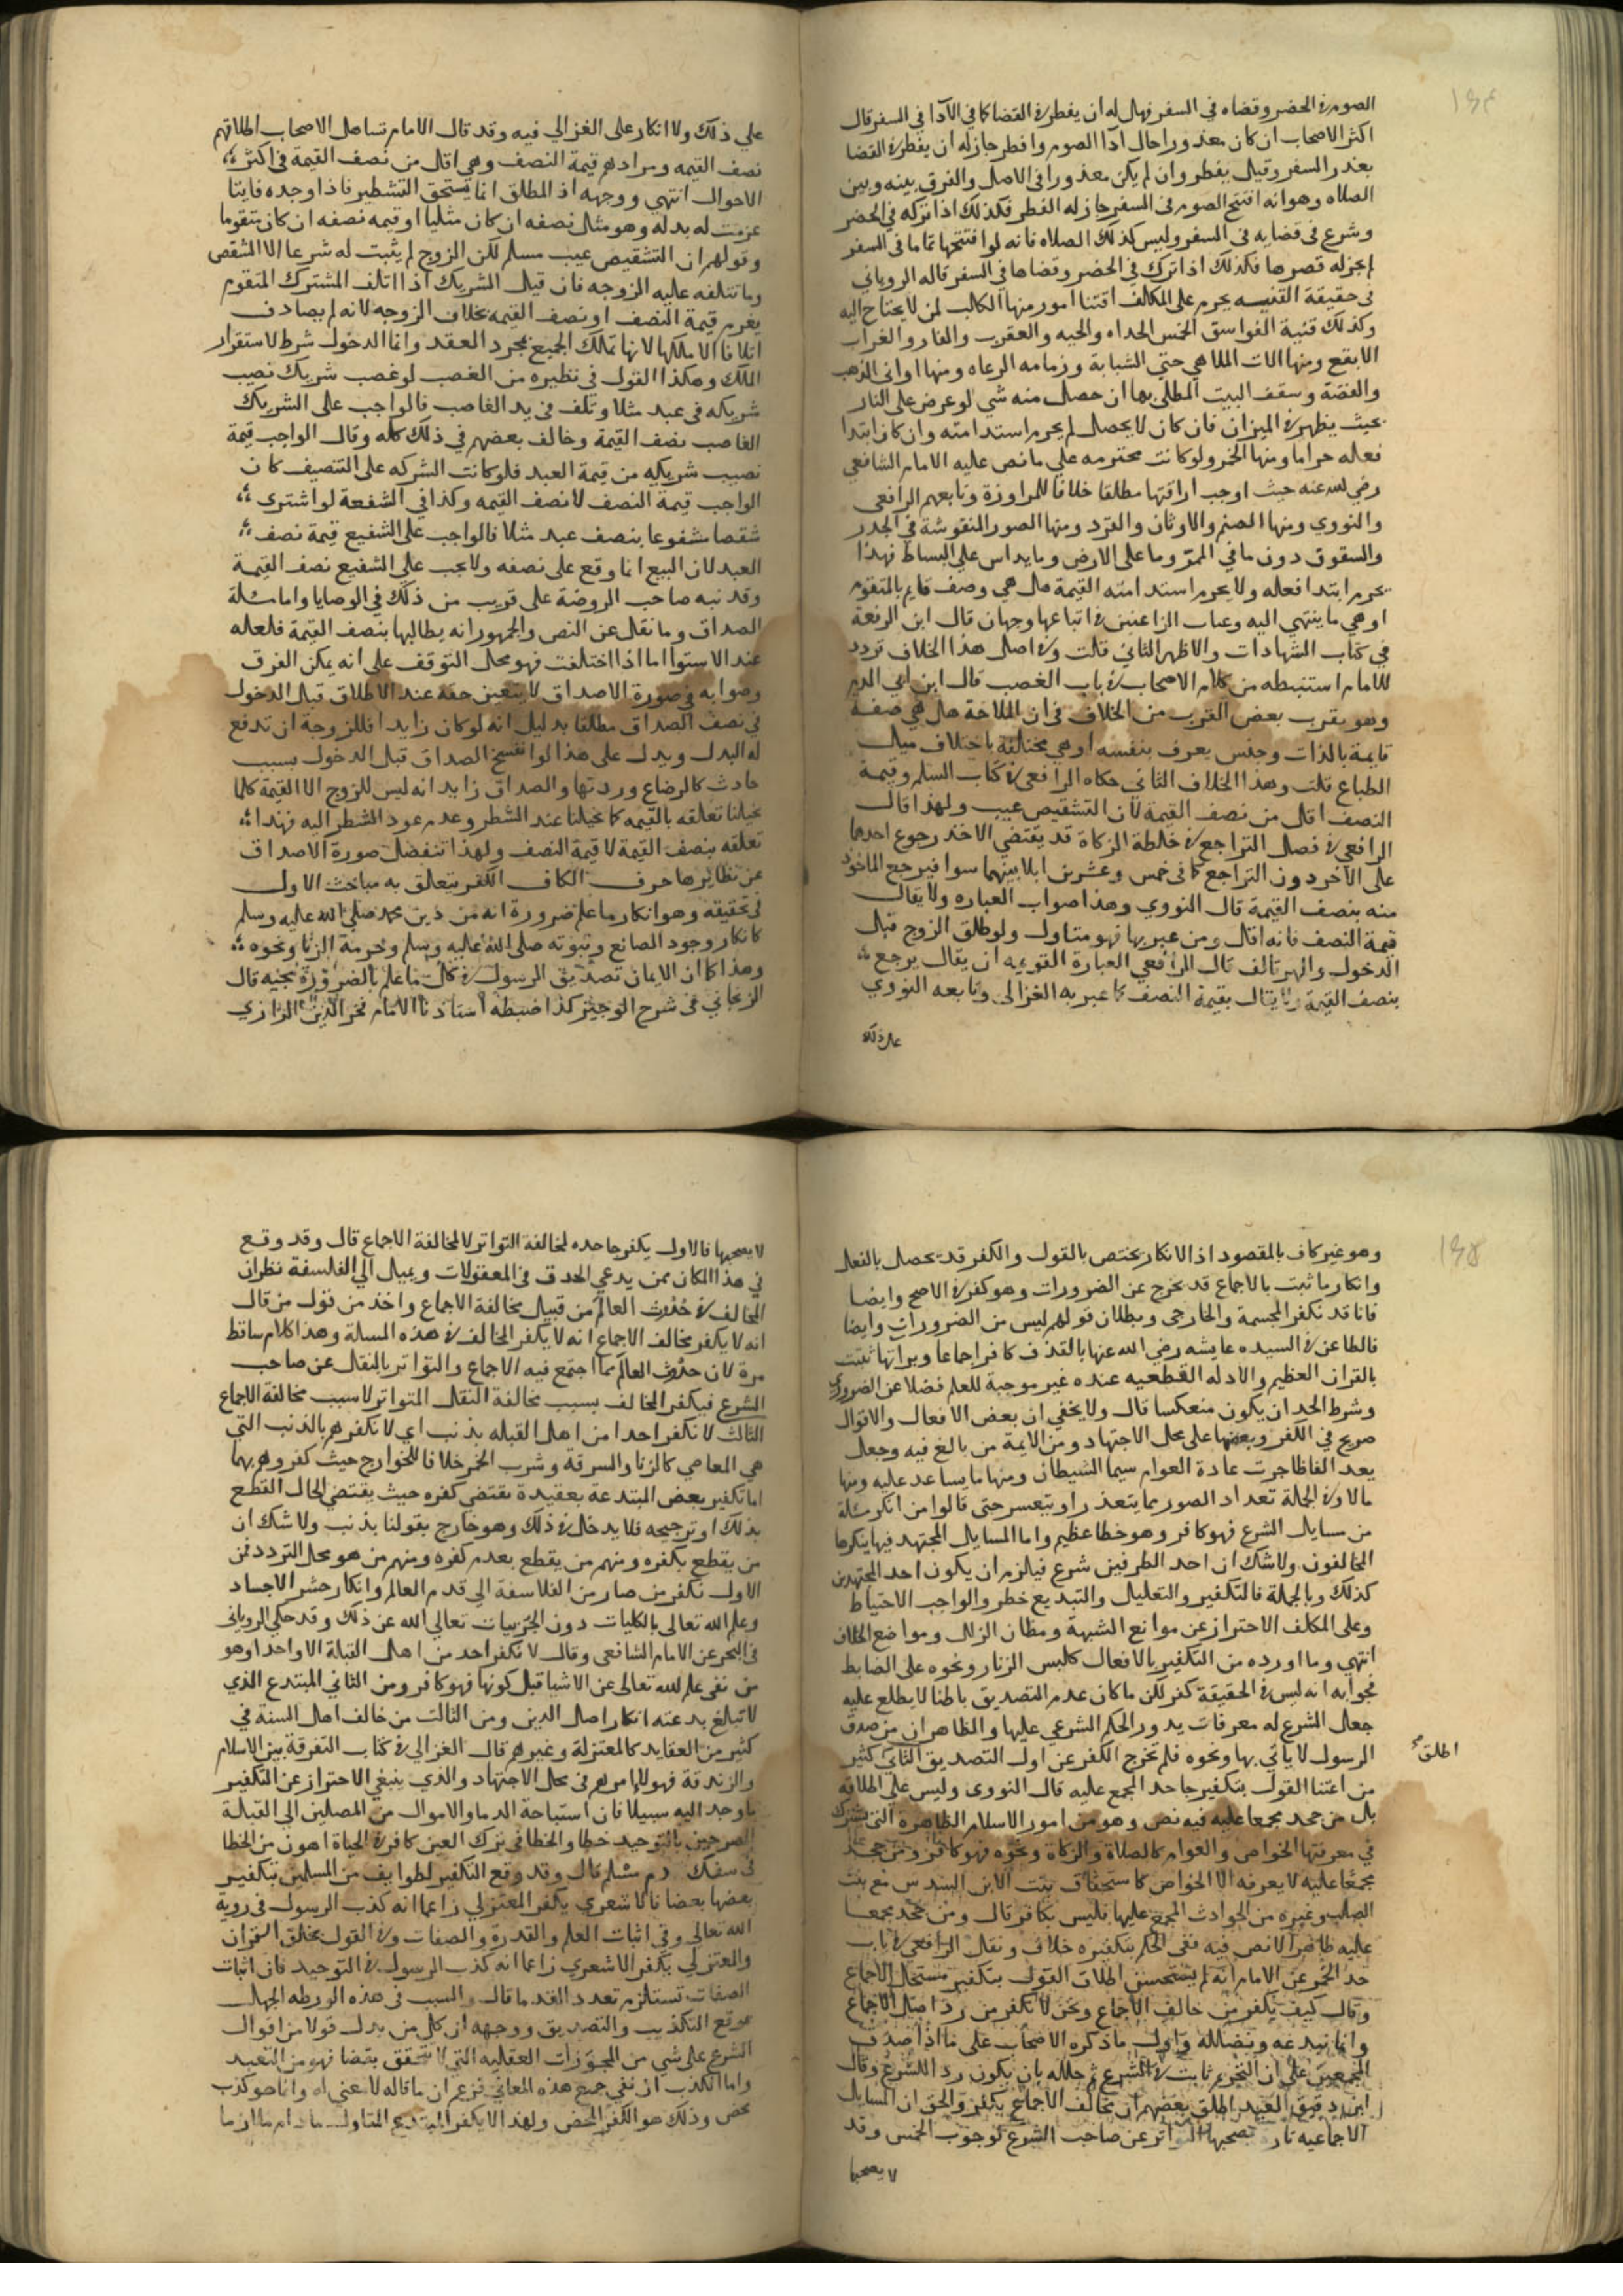 ١٩٤
الصوم في الحضر وقضاه في السفر فهل له ان يفطر في القضا كما في الآدا في السفر قال
اكثر الاصحاب ان كان معذورا حال ادا الصوم وافطر جاز له ان يفطر في القضا
بعذر السفر وقيل يفطر وان لم يكن معذورا في الاصل والفرق بينه وبين
الصلاه وهو انه افتتح الصوم في السفر جاز له الفطر فكذلك اذا تركه في الحضر
وشرع في قضايه في السفر وليس كذلك الصلاه فانه لو افتتحها تماما في السفر
لم يجز له قصرها فكذلك اذا ترك في الحضر وقضاها في السفر قاله الروياني
في حقيقة القنيه يحرم على المكلف اقتنا امور منها الكلب لمن لا يحتاج اليه
وكذلك قنية الفواسق الخمس الحداه والحيه والعقرب والفار والغراب
الابقع ومنها الات الملاهي حتى الشبابة وزمامه الرعاه ومنها اواني الذهب
والفضة وسقف البيت المطلى بها ان حصل منه شي لو عرض على النار
بحيث يظهر في الميزان فان كان لا يحصل لم يحرم استدامته وان كان ابتدا
فعله حراما ومنها الخمر ولو كانت محترمه علي ما نص عليه الامام الشافعي
رضي لله عنه حيث اوجب اراقتها مطلقا خلافا للمراوزة وتابعهم الرافعي
والنووي ومنها الصنم والاوثان والقرد ومنها الصور المنقوشة في الجدر
والسقوق دون ما في الممر وما على الارض وما يداس علي البساط فهذا
يحرم ابتدا فعله ولا يحرم استدامته القيمة هل هي وصف قايم بالمتقوم
او هي ما ينتهي اليه رغبات الراغبين في اتباعها وجهان قال ابن الرفعة
في كتاب الشهادات والاظهر الثاني قلت وفي اصل هذا الخلاف تردد
للامام استنبطه من كلام الاصحاب في باب الغصب قال ابن ابي الدم
وهو يقرب بعض القرب من الخلاف في ان الملاحة هل هي صفة
قايمة بالذات وجنس يعرف بنفسه او هي مختلفة باختلاف ميل
الطباع قلت وهذا الخلاف الثاني حكاه الرافعي في كتاب السلم وقيمة
النصف اقل من نصف القيمه لان التشقيص عيب ولهذا قال
الرافعي في فصل التراجع في خلطة الزكاة قد يقتضي الاخذ رجوع احدهما
على الآخر دون التراجع كما في خمس وعشرين ابلا بينهما سوا فيرجع الماخوذ
منه بنصف القيمة قال النووي وهذا صواب العباره ولا يقال
قيمة النصف فانه اقل ومن عبر بها فهو متاول ولو طلق الزوج قبل
الدخول والمهر تالف قال الرافعي العبارة القويمه ان يقال يرجع
بنصف القيمة ولا يقال بقيمة النصف كما عبر به الغزالى وتابعه النووي
على ذلك
علي ذلك ولا انكار على الغزالي فيه وقد قال الامام تساهل الاصحاب اطلاقهم
نصف القيمه ومرادهم قيمة النصف وهي اقل من نصف القيمة في اكثر
الاحوال انتهي ووجهه اذ المطلق انما يستحق التشطير فاذا وجده فايتا
غرمت له بدله وهو مثل نصفه ان كان مثليا او قيمه نصفه ان كان متقوما
وقولهم ان التشقيص عيب مسلم لكن الزوج لم يثبت له شرعا الا الشقص
وما تتلفه عليه الزوجه فان قيل الشريك اذا اتلف المشترك المتقوم
يغرم قيمة النصف او نصف القيمه بخلاف الزوجه لانه لم يصادف
اتلافا الا ملكها لانها تملك الجميع بمجرد العقد وانما الدخول شرط لاستقرار
الملك وهكذا القول في نظيره من الغصب لو غصب شريك نصيب
شريكه في عبد مثلا وتلف في يد الغاصب فالواجب على الشريك
الغاصب نصف القيمة وخالف بعضهم في ذلك كله وقال الواجب قيمة
نصيب شريكه من قيمة العبد فلو كانت الشركه على التنصيف كان
الواجب قيمة النصف لا نصف القيمه وكذا في الشفعة لو اشترى
شقصا مشفوعا بنصف عبد مثلا فالواجب على الشفيع قيمة نصف
العبد لان البيع انما وقع على نصفه ولا يجب علي الشفيع نصف القيمة
وقد نبه صاحب الروضة على قريب من ذلك في الوصايا واما مسئلة
الصداق وما نقل عن النص والجمهور انه يطالبها بنصف القيمة فلعله
عند الاستوا اما اذا اختلفت فهو محل التوقف على انه يمكن الفرق
وصوابه في صورة الاصداق لا يتعين حقه عند الاطلاق قبل الدخول
في نصف الصداق مطلقا بدليل انه لو كان زايدا فللزوجة ان تدفع
له البدل ويدل على هذا لو انفسخ الصداق قبل الدخول بسبب
حادث كالرضاع وردتها والصداق زايد انه ليس للزوج الا القيمة كلها
تخيلنا تعلقه بالقيمه كما تخيلنا عند الشطر وعدم عود الشطر اليه فهذا
تعلقه بنصف القيمة لا قيمة النصف ولهذا تنفصل صورة الاصداق
عن نظايرها حرف الكاف الكفر يتعلق به مباحث الاول
في تحقيقه وهو انكار ما علم ضرورة انه من دين محمد صلى الله عليه وسلم
كانكار وجود الصانع ونبوته صلى الله عليه وسلم وحرمة الزنا ونحوه
وهذا كما ان الايمان تصديق الرسول في كل ما علم بالضرورة مجيه قال
الزنجاني في شرح الوجيز كذا ضبطه استاذنا الامام فخر الدين الرازي
١٩٥
وهو غير كاف بالمقصود اذ الانكار يختص بالقول والكفر قد يحصل بالفعل
وانكار ما ثبت بالاجماع قد يخرج عن الضرورات وهو كفر في الاصح وايضا
فانا قد نكفر المجسمة والخارجي وبطلان قولهم ليس من الضروراتِ وايضا
فالطاعن في السيده عايشه رضي الله عنها بالقذف كافر اجماعا وبراتها ثبتت
بالقران العظيم والادله القطعيه عنده غير موجبة للعلم فضلا عن الضروري
وشرط الحد ان يكون منعكسا قال ولا يخفي ان بعض الافعال والاقوال
صريح في الكفر وبعضها على محل الاجتهاد ومن الايمة من بالغ فيه وجعل
يعد الفاظا جرت عادة العوام سيما الشيطان ومنها ما يساعد عليه ومنها
ما لا وفي الجملة تعداد الصور مما يتعذر او يتعسر حتى قالوا من انكر مسئلة
من مسايل الشرع فهو كافر وهو خطا عظيم واما المسايل المجتهد فيها ينكرها
المخالفون ولا شك ان احد الطرفين شرع فيلزم ان يكون احد المجتهدين
كذلك وبالجملة فالتكفير والتعليل والتبديع خطر والواجب الاحتياط
وعلى المكلف الاحتراز عن موانع الشبهة ومظان الزلل ومواضع الخلاف
انتهي وما اورده من التكفير بالافعال كلبس الزنار ونحوه على الضابط
فجوابه انه ليس في الحقيقة كفر لكن ما كان عدم التصديق باطنا لا يطلع عليه
جعل الشرع له معرفات يدور الحكم الشرعي عليها والظاهر ان من صدق
الرسول لا ياتي بها ونحوه فلم تخرج الكفر عن اول التصديق الثاني كثير
اطلق
من ائمتنا القول بتكفير جاحد المجمع عليه قال النووى وليس علي اطلاقه
بل من جحد مجمعا عليه فيه نص وهو من امور الاسلام الظاهرة التى يشترك
في معرفتها الخواص والعوام كالصلاة والزكاة ونحوه فهو كافر ومن جحد
مجمعا عليه لا يعرفه الا الخواص كاستحقاق بنت الابن السدس مع بنت
الصلب وغيره من الحوادث المجمع عليها فليس بكافر قال ومن جحد مجمعا
عليه ظاهرا لا نص فيه ففي الحكم بتكفيره خلاف ونقل الرافعي في باب
حد الخمر عن الامام انه لم يستحسن اطلاق القول بتكفير مستحل الاجماع
وقال كيف يكفر من خالف الاجماع ونحن لا نكفر من رد اصل الاجماع
وانما نبدعه ونضلله واول ما ذكره الاصحاب على ما اذا صدق
المجمعين على ان التحريم ثابت في الشرع ثم حلله بان يكون ردا للشرع وقال
ابن دقيق العيد اطلق بعضهم ان مخالف الاجماع يكفر والحق ان المسايل
الاجماعيه تارة يصحبها التواتر عن صاحب الشرع كوجوب الخمس وقد
لا يصحبها
لا يصحبها فالاول يكفر جاحده لمخالفة التواتر لا لمخالفة الاجماع قال وقد وقع
في هذا المكان ممن يدعي الحذق في المعقولات ويميل الي الفلسفة نظر ان
المخالف في حدوث العالم من قبيل مخالفة الاجماع واخذ من قول من قال
انه لا يكفر مخالف الاجماع انه لا يكفر المخالف في هذه المسالة وهذا كلام ساقط
مرة لان حدوث العالم مما اجتمع فيه الاجماع والتواتر بالنقل عن صاحب
الشرع فيكفر المخالف بسبب مخالفة النقل المتواتر لا سبب مخالفة الاجماع
الثالث لا نكفر احدا من اهل القبله بذنب اي لا نكفرهم بالذنب التي
هي المعاصي كالزنا والسرقة وشرب الخمر خلافا للخوارج حيث كفروهم بها
اما تكفير بعض المبتدعة بعقيدة تقتضي كفره حيث يقتضي الحال القطع
بذلك او ترجيحه فلا يدخل في ذلك وهو خارج بقولنا بذنب ولا شك ان
من يقطع بكفره ومنهم من يقطع بعدم كفره ومنهم من هو محل التردد فمن
الاول تكفير من صار من الفلاسفة الي قدم العالم وانكار حشر الاجساد
وعلم الله تعالى بالكليات دون الجزييات تعالي الله عن ذلك وقد حكي الروياني
في البحر عن الامام الشافعى وقال لا نكفر احد من اهل القبلة الا واحدا وهو
من نفي علم لله تعالى عن الاشيا قبل كونها فهو كافر ومن الثاني المبتدع الذي
لا تبلغ بدعته انكار اصل الدين ومن الثالث من خالف اهل السنة في
كثير من العقايد كالمعتزلة وغيرهم قال الغزالي في كتاب التفرقة بين الاسلام
والزندقة فهولا امرهم في محل الاجتهاد والذي ينبغي الاحتراز عن التكفير
ما وجد اليه سبيلا فان استباحة الدما والاموال من المصلين الي القبلة
المصرحين بالتوحيد خطا والخطا في ترك العين كافر في الحياة اهون من الخطا
في سفك دم مسلم قال وقد وقع التكفير لطوايف من المسلمين بتكفير
بعضها بعضا فالاشعري يكفر المعتزلي زاعما انه كذب الرسول في روية
الله تعالى وفي اثبات العلم والقدرة والصفات وفي القول بخلق القران
والمعتزلي يكفر الاشعري زاعما انه كذب الرسول في التوحيد فان اثبات
الصفات تستلزم تعدد القدما قال والسبب في هذه الورطه الجهل
بموقع التكذيب والتصديق ووجهه ان كل من بدل قولا من اقوال
الشرع على شي من المجوزات العقليه التي لا تتحقق بقضا فهو من التعبد
واما الكذب ان نفي جميع هذه المعاني فزعم ان ما قاله لا معني له وانما هو كذب
محض وذلك هو الكفر المحض ولهذا لا يكفر المبتدع المتاول ما دام ملازما